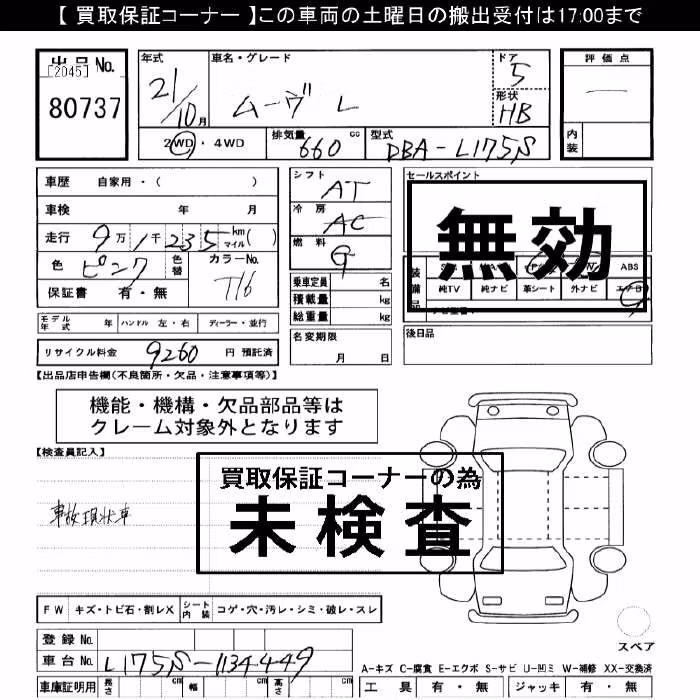 【 買取保証コーナー 】この車両の土曜日の搬出受付は17:00まで
出品 No.
[2045]
80737
年式
21/10月
車名・グレード
ムーヴ L
ドア
5
形状
HB
評価点
—
内装
2WD ・ 4WD
排気量
660 cc
型式
DBA-L175S
車歴 自家用・( )
車検 年 月
走行 9万1千235 km マイル ( )
色 ピンク 色替
カラーNo.
T16
保証書 有・無
シフト
AT
冷房
AC
燃料
G
乗車定員 名
積載量 kg
総重量 kg
セールスポイント
無効
装備品
ABS
純TV 純ナビ 革シート 外ナビ エアB
モデル年式 年 ハンドル 左・右 ディーラー・並行
名変期限
月 日
後日品
リサイクル料金 9260 円 預託済
【出品店申告欄(不良箇所・欠品・注意事項等)】
機能・機構・欠品部品等は
クレーム対象外となります
【検査員記入】
買取保証コーナーの為
未検査
事故現状車
FW キズ・トビ石・割レX シート内装 コゲ・穴・汚レ・シミ・破レ・スレ
スペア
登録 No.
車台 No. L175S-1134449
A-キズ C-腐食 E-エクボ S-サビ U-凹ミ W-補修 XX-交換済
車庫証明用 長さ cm 幅 cm 高さ cm
工具 有・無 ジャッキ 有・無